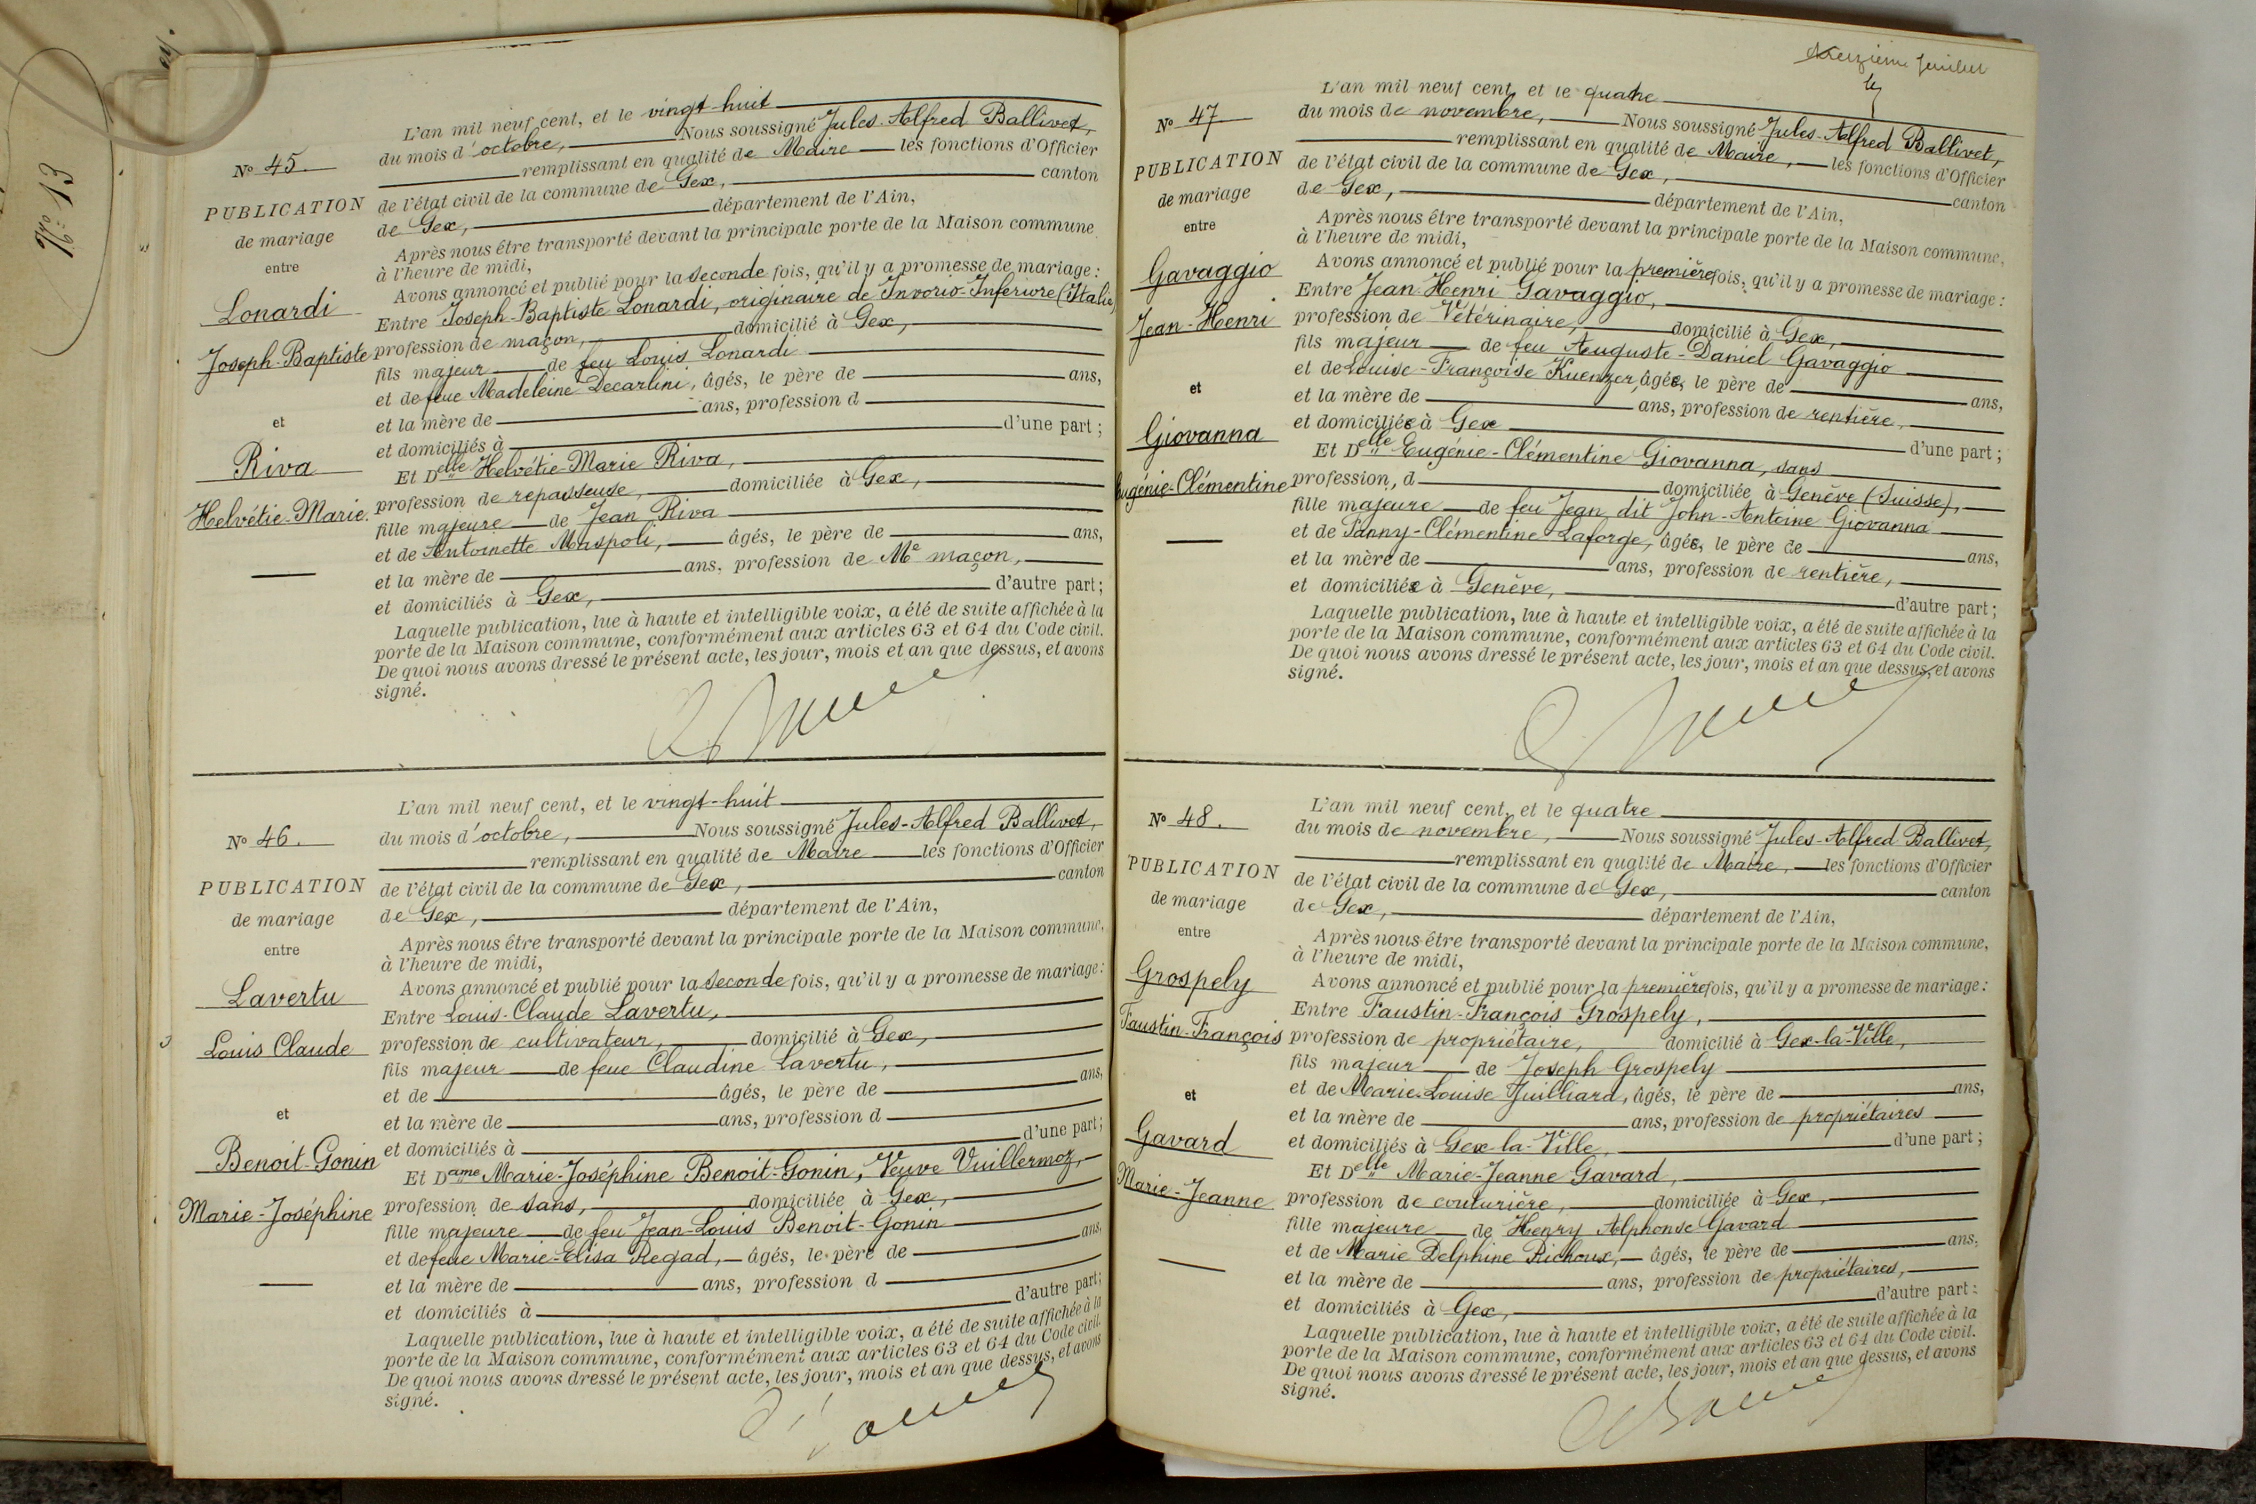 No 13
L'an mil neuf cent, et le vingt-huit
du mois d'octobre, Nous soussigné Jules-Alfred Ballivet,
remplissant en qualité de Maire les fonctions d'Officier
de l'état civil de la commune de Gex, canton
de Gex, département de l'Ain,
Après nous être transporté devant la principale porte de la Maison commune
à l'heure de midi,
Avons annoncé et publié pour la seconde fois, qu'il y a promesse de mariage :
Entre Joseph-Baptiste Lonardi, originaire de Invorio-Inferiore (Italie)
profession de maçon, domicilié à Gex,
fils majeur de feu Louis Lonardi
et de feue Madeleine Decarlini, âgés, le père de ans,
et la mère de ans, profession d
et domiciliés à d'une part ;
Et Delle Helvétie-Marie Riva,
profession de repasseuse, domiciliée à Gex,
fille majeure de Jean Riva
et de Antoinette Maspoli, âgés, le père de ans,
et la mère de ans, profession de Me maçon,
et domiciliés à Gex, d'autre part ;
Laquelle publication, lue à haute et intelligible voix, a été de suite affichée à la
porte de la Maison commune, conformément aux articles 63 et 64 du Code civil.
De quoi nous avons dressé le présent acte, les jour, mois et an que dessus, et avons
signé.
No 45.
PUBLICATION
de mariage
entre
Lonardi
Joseph-Baptiste
et
Riva
Helvétie-Marie.
L'an mil neuf cent, et le vingt-huit
du mois d'octobre, Nous soussigné Jules-Alfred Ballivet,
remplissant en qualité de Maire les fonctions d'Officier
de l'état civil de la commune de Gex, canton
de Gex, département de l'Ain,
Après nous être transporté devant la principale porte de la Maison commune,
à l'heure de midi,
Avons annoncé et publié pour la seconde fois, qu'il y a promesse de mariage :
Entre Louis-Claude Lavertu,
profession de cultivateur, domicilié à Gex,
fils majeur de feue Claudine Lavertu,
et de âgés, le père de ans,
et la mère de ans, profession d
et domiciliés à d'une part ;
Et Dame Marie-Joséphine Benoit-Gonin, Veuve Vuillermoz,
profession de sans, domiciliée à Gex,
fille majeure de feu Jean-Louis Benoit-Gonin
et de feue Marie-Elisa Regad, âgés, le père de ans,
et la mère de ans, profession d
et domiciliés à d'autre part ;
Laquelle publication, lue à haute et intelligible voix, a été de suite affichée à la
porte de la Maison commune, conformément aux articles 63 et 64 du Code civil.
De quoi nous avons dressé le présent acte, les jour, mois et an que dessus, et avons
signé.
No 46.
PUBLICATION
de mariage
entre
Lavertu
Louis Claude
et
Benoit-Gonin
Marie-Joséphine
L'an mil neuf cent, et le quatre
du mois de novembre, Nous soussigné Jules-Alfred Ballivet,
remplissant en qualité de Maire, les fonctions d'Officier
de l'état civil de la commune de Gex, canton
de Gex, département de l'Ain,
Après nous être transporté devant la principale porte de la Maison commune,
à l'heure de midi,
Avons annoncé et publié pour la première fois, qu'il y a promesse de mariage :
Entre Jean-Henri Gavaggio,
profession de Vétérinaire, domicilié à Gex,
fils majeur de feu Auguste-Daniel Gavaggio
et de Louise-Françoise Kuenzer, âgés, le père de ans,
et la mère de ans, profession de rentière,
et domiciliés à Gex d'une part ;
Et Delle Eugénie-Clémentine Giovanna, sans
profession, d domiciliée à Genève (Suisse),
fille majeure de feu Jean dit John-Antoine Giovanna
et de Fanny-Clémentine Laforge, âgés, le père de ans,
et la mère de ans, profession de rentière,
et domiciliés à Genève, d'autre part ;
Laquelle publication, lue à haute et intelligible voix, a été de suite affichée à la
porte de la Maison commune, conformément aux articles 63 et 64 du Code civil.
De quoi nous avons dressé le présent acte, les jour, mois et an que dessus, et avons
signé.
No 47
PUBLICATION
de mariage
entre
Gavaggio
Jean-Henri
et
Giovanna
Eugénie-Clémentine
L'an mil neuf cent, et le quatre
du mois de novembre, Nous soussigné Jules-Alfred Ballivet,
remplissant en qualité de Maire, les fonctions d'Officier
de l'état civil de la commune de Gex, canton
de Gex, département de l'Ain,
Après nous être transporté devant la principale porte de la Maison commune,
à l'heure de midi,
Avons annoncé et publié pour la première fois, qu'il y a promesse de mariage :
Entre Faustin-François Grospely,
profession de propriétaire, domicilié à Gex-la-Ville,
fils majeur de Joseph Grospely
et de Marie-Louise Juilliard, âgés, le père de ans,
et la mère de ans, profession de propriétaires
et domiciliés à Gex-la-Ville, d'une part ;
Et Delle Marie-Jeanne Gavard,
profession de couturière, domiciliée à Gex,
fille majeure de Henry Alphonse Gavard
et de Marie Delphine Richoux, âgés, le père de ans,
et la mère de ans, profession de propriétaires,
et domiciliés à Gex, d'autre part :
Laquelle publication, lue à haute et intelligible voix, a été de suite affichée à la
porte de la Maison commune, conformément aux articles 63 et 64 du Code civil.
De quoi nous avons dressé le présent acte, les jour, mois et an que dessus, et avons
signé.
No 48.
PUBLICATION
de mariage
entre
Grospely
Faustin-François
et
Gavard
Marie-Jeanne